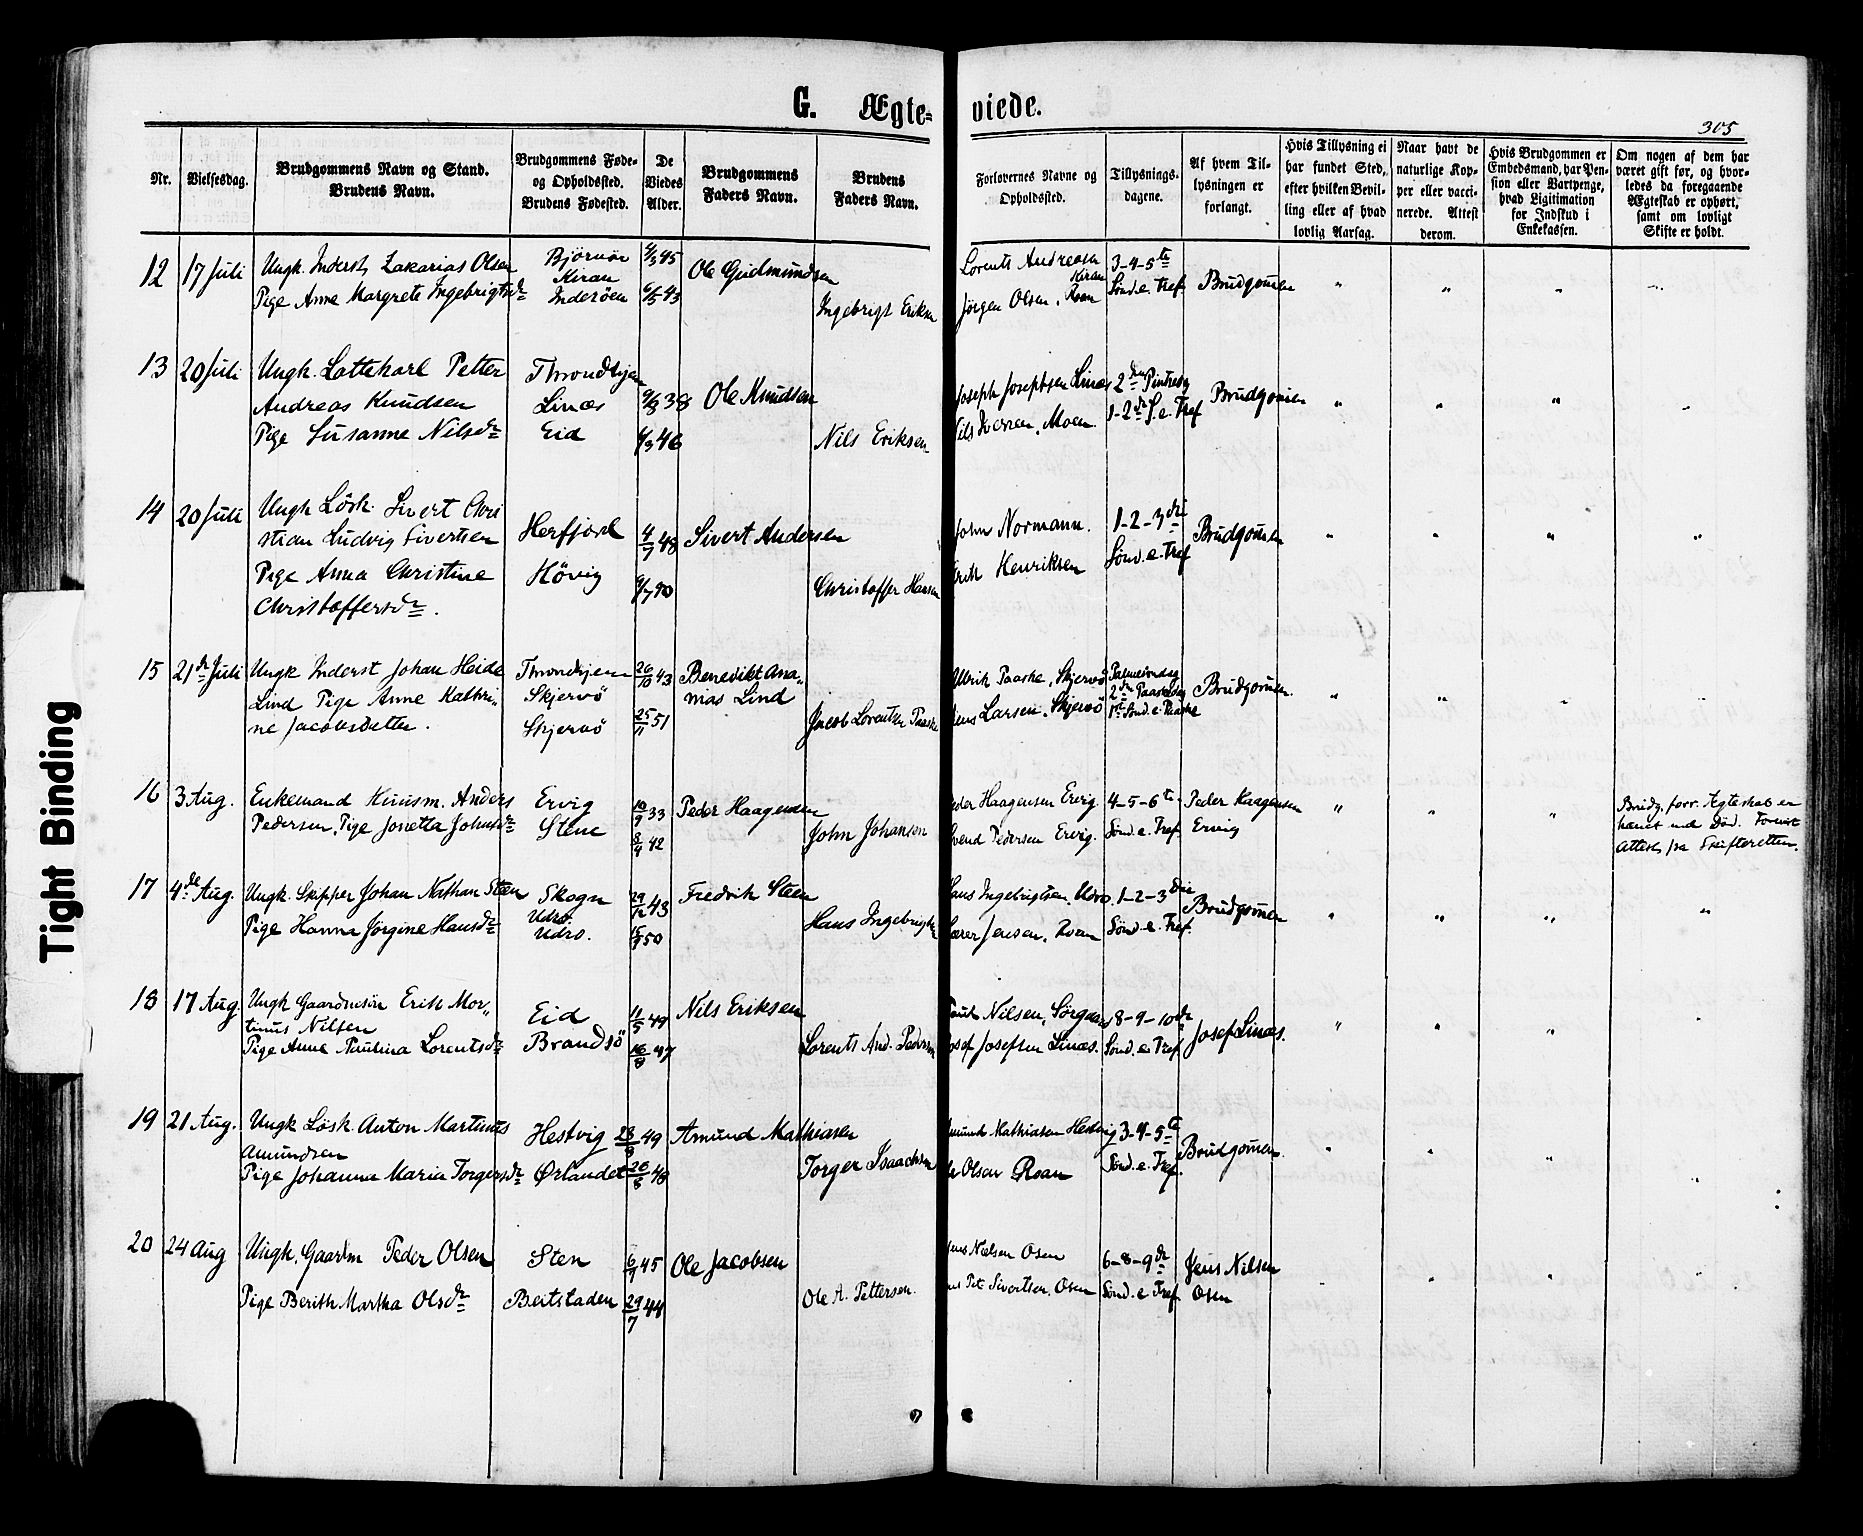 G. Ægte=
viede.
305
Nr.
Vielsesdag.
Brudgommens Navn og Stand.
Brudens Navn.
Brudgommens Føde-
og Opholdsted.
Brudens Fødested.
De
Viedes
Alder.
Brudgommens
Faders Navn.
Brudens
Faders Navn.
Forlovernes Navne og
Opholdsted.
Tillysnings-
dagene.
Af hvem Til-
lysningen er
forlangt.
Hvis Tillysning ei
har fundet Sted,
efter hvilken Bevil-
ling eller af hvad
lovlig Aarsag.
Naar havt de
naturlige Kop-
per eller vacci-
nerede. Attest
derom.
Hvis Brudgommen er
Embedsmand, har Pen-
sion eller Vartpenge,
hvad Ligitimation
for Indskud i
Enkekassen.
Om nogen af dem har
været gift før, og hvor-
ledes da foregaaende
Ægteskab er ophørt,
samt om lovligt
Skifte er holdt.
12 17 Juli
Ungk. Inderst, Zakarias Olsen
Pige Anne Margrete Ingebrigtsdr
Bjørnør
Kiran
Inderøen
4/3 45
6/5 43
Ole Gudmundsen
Ingebrigt Eriksen
Lorents Andreasen
Kiran
Jørgen Olsen, Roan
3-4-5te
Sønd. e. Tref.
Brudgommen
13 20 Juli
Ungk. Lottekarl Petter
Andreas Knudsen
Pige Susanne Nilsdr
Throndhjem
Linæs
Eid
9/8 38
4/3 46
Ole Knudsen
Nils Eriksen
Joseph Josephsen Linæs
Nils Iversen, Moen
2den Pintsedg
1-2den S. e. Tref
Brudgommen
14 20 Juli
Ungk Løsk. Sivert Chri
stian Ludvig Sivertsen
Pige Anna Christine
Christoffersdr.
Herfjord
Hövig
4/7 48
9/7 40
Sivert Andersen
Christoffer Hansen
John Normann.
Erik Henriksen
1-2-3die
Sønd. e. Tref
Brudgommen
15 21de Juli
Ungk Inderst Johan Heide
Lind Pige Anne Kathri-
ne Jacobsdatter.
Throndhjem
Skjervö
Skjervö
26/10 43
25/11 51
Benedikt Ana-
nias Lind
Jacob Lorentzen Paaske
Ulrik Paaske, Skjervö
Jens Larsen, Skjervö
Palmesöndag
2den Paaskedag
1ste Sønd. e. Paaske
Brudgommen.
16 3 Aug.
Enkemand Huusm. Anders
Pedersen, Pige Jonetta Johnsdr
Ervig
Stene
10/9 33
8/4 42
Peder Haagensen
John Johanson
Peder Haagensen Ervig
Svend Pedersen Ervig.
4-5-6te
Sønd. e. Tref
Peder Haagensen
Ervig
Brudg. forr. Ægteskab er
hævet ved Död. Forevist
Attest fra Skifteretten.
17 4de Aug.
Ungk. Skipper Johan Nathan Steen
Pige Hanna Jørgine Hansdr
Skogn
Udro.
Udro.
29/12 43
15/9 50
Fredrik Steen
Hans Ingebrigtsen
Hans Ingebrigtsen, Udro
Jensen, Roan
1-2-3die
Sønd. e. Tref.
Brudgommen
18 17 Aug.
Ungk Gaardmsön Erik Mor-
tinus Nilsen
Pige Anne Paulina Lorentsdr
Eid
Brandsö
11/5 49
16/8 47
Nils Eriksen
Lorents And. Pedersen
Paul Nilsen, Sørgaard
Josef Josefsen Linæs.
8-9-10de
Sønd. e. Tref
Josef Linæs.
19 21 Aug.
Ungk Løsk. Anton Martinus
Amundsen
Pige Johanna Maria Torgersdr
Hestvig
Ørlandet
23/8 49
20/8 48
Amund Mathiasen
Torger Isaachsen
Amund Mathiasen Hestvig
Ole Olsen Roan
3-4-5te
Sønd. e. Tref.
Brudgommen.
20 24 Aug
Ungk. Gaardm Peder Olsen
Pige Berith Martha Olsdr
Sten
Beitstaden
6/9 45
29/7 44
Ole Jacobsen
Ole A. Pettersen.
Jens Nielsen Osen
Pet. Sivertsen, Osen
6-8-9de
Sønd. e Tref
Jens Nilsen
Osen
Tight Binding